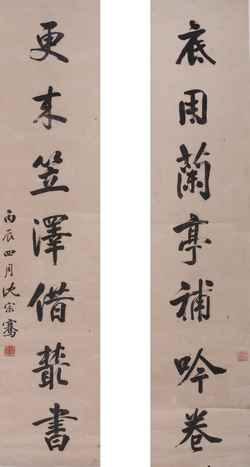 底用蘭亭補吟卷
更來笠澤借叢書
丙辰四月沈宗騫